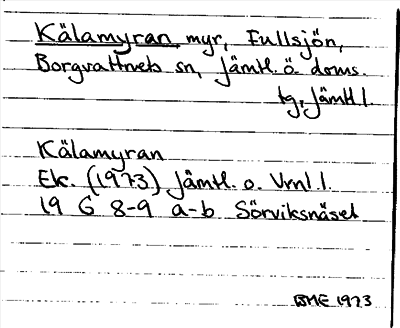 Kälamyran myr, Fullsjön,
Borgvattnets sn, Jämtl. ö. doms.
tg, Jämtl l.
Kälamyran
Ek. (1973) Jämtl. o. Vrnl. l.
19 G 8-9 a-b Sörviksnäset
BME 1973